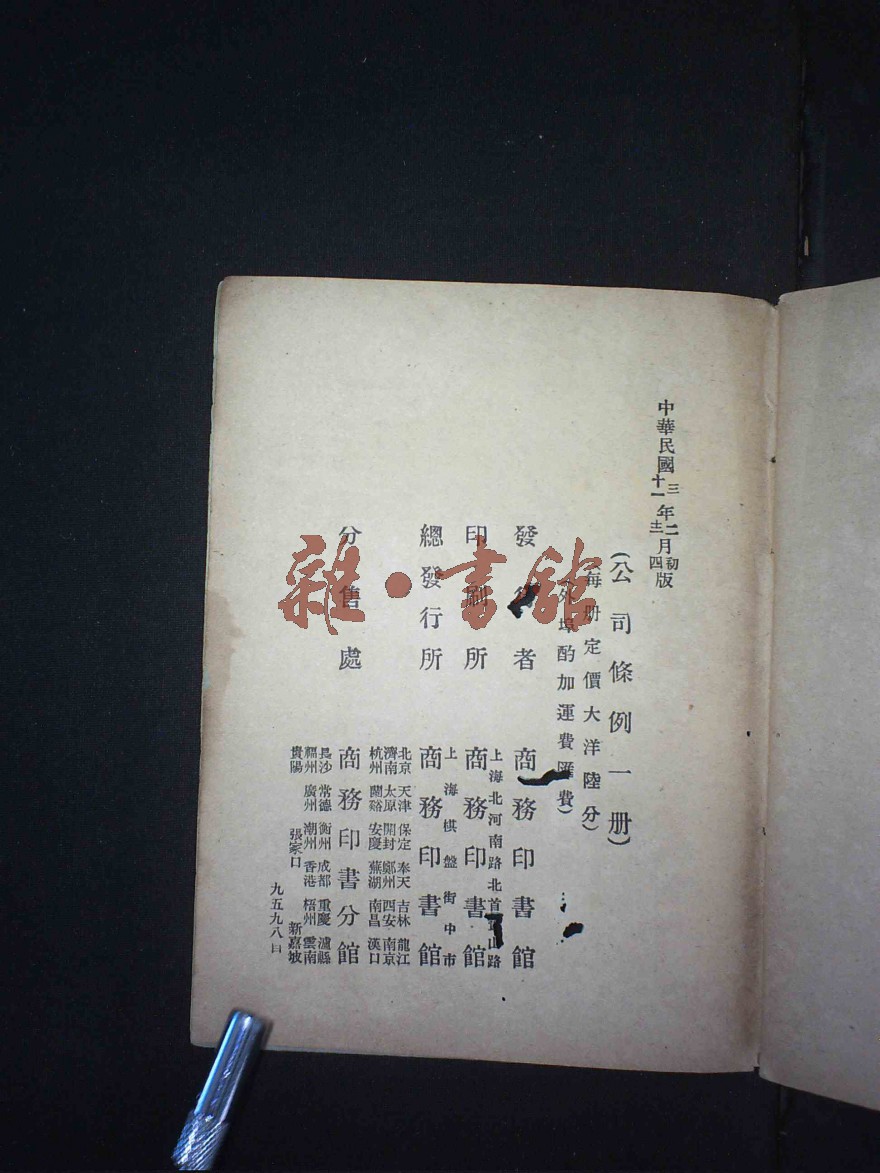 中華民國三年二月初版
十一年十二月四版
(公司條例一册)
(每册定價大洋陸分)
(外埠酌加運費匯費)
發行者 商務印書館
上海北河南路北首 山路
印刷所 商務印書館
上海棋盤街中市
總發行所 商務印書館
分售處 商務印書分館
北京 天津 保定 奉天 吉林 龍江
濟南 太原 開封 鄭州 西安 南京
杭州 蘭谿 安慶 蕪湖 南昌 漢口
長沙 常德 衡州 成都 重慶 瀘縣
福州 廣州 潮州 香港 梧州 雲南
貴陽 張家口 新嘉坡
九五九八
雜·書館